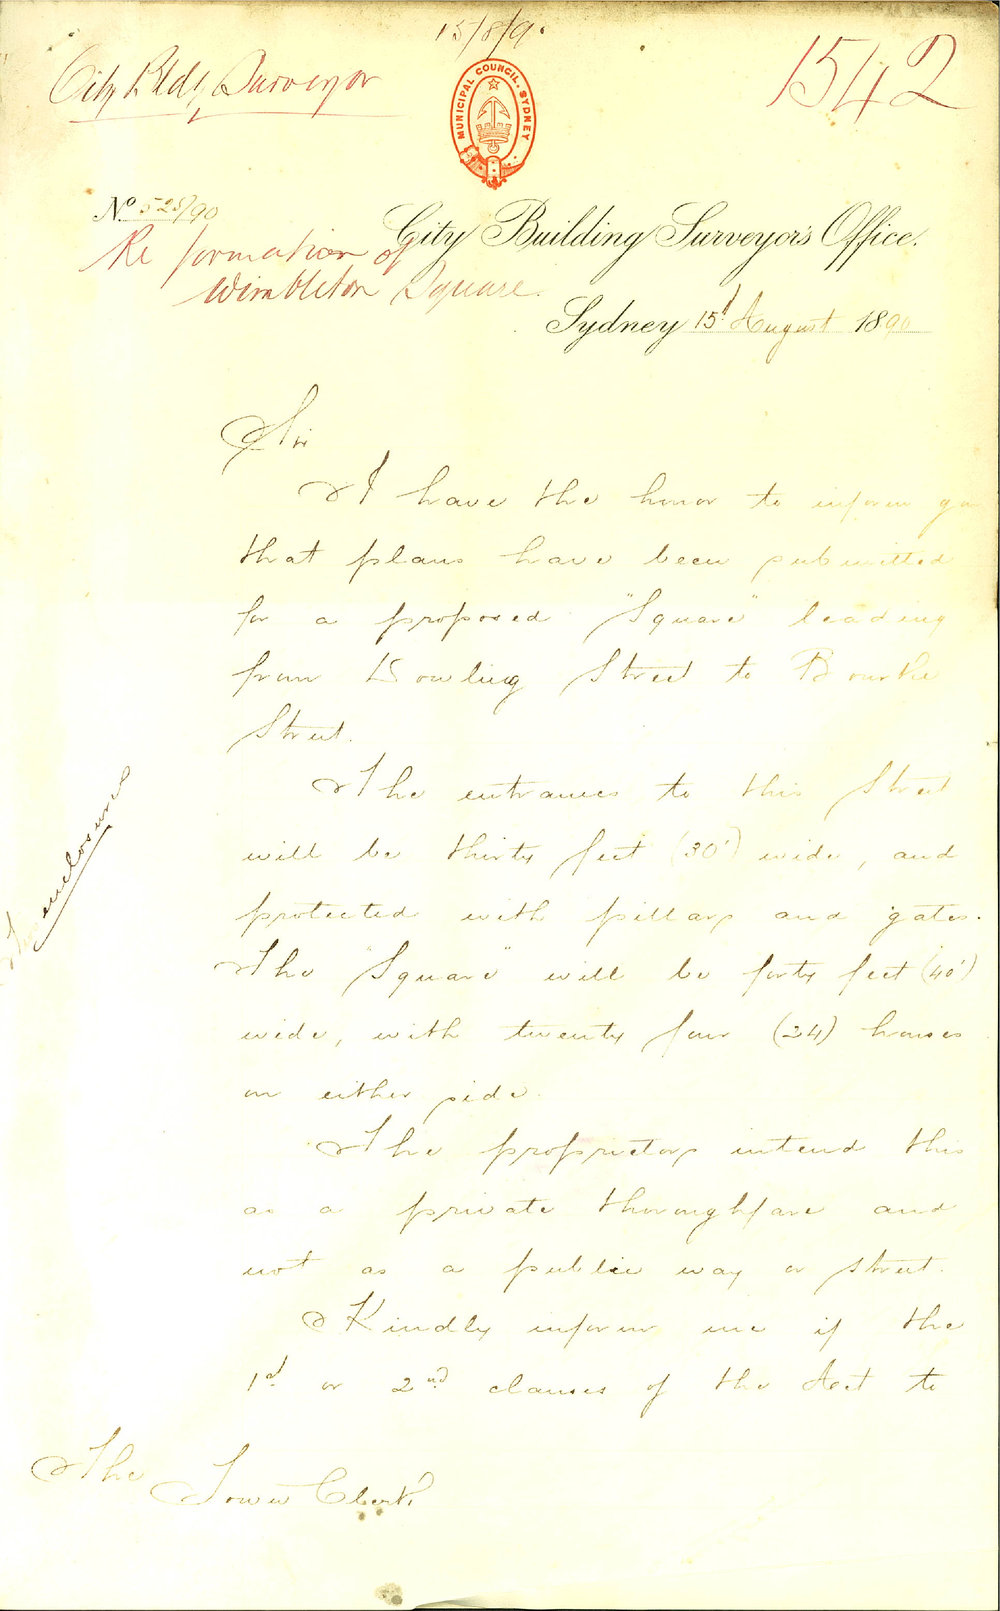 15/8/9
City Bldg Surveyor
1542
MUNICIPAL COUNCIL. SYDNEY
No 525/90
City Building Surveyor's Office.
Re formation of
Wimbleton Square.
Sydney 15th August 1890
Sir
I have the honor to inform you
that plans have been submitted
for a proposed "Square" leading
from Dowling Street to Bourke
Street.
The entrances to this Street
will be thirty feet (30') wide, and
protected with pillars and gates.
The "Square" will be forty feet (40')
wide, with twenty four (24) houses
on either side.
The proprietors intend this
as a private thoroughfare and
not as a public way or street.
Kindly inform me if the
1st or 2nd clauses of the Act to
enclosure
The Town Clerk